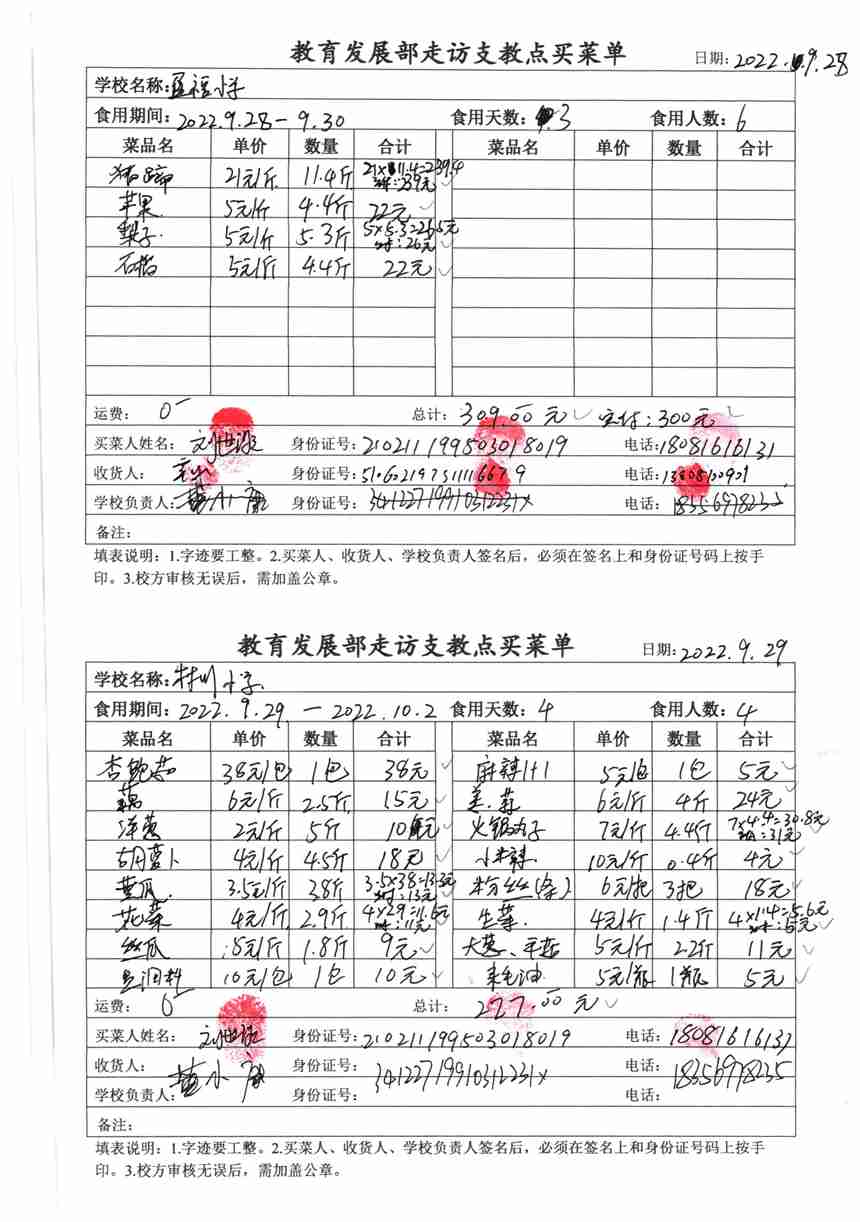 教育发展部走访支教点买菜单
日期: 2022.9.28
学校名称: 小学
食用期间: 2022.9.28 - 9.30 食用天数: 3 食用人数: 6
菜品名 单价 数量 合计 菜品名 单价 数量 合计
猪蹄 21元/斤 11.4斤 21×11.4=239.4 :239元
苹果 5元/斤 4.4斤 22元
梨子 5元/斤 5.3斤 5×5.3=26.5元 :26元
石榴 5元/斤 4.4斤 22元
运费: 0 总计: 309.00元 实付: 300元
买菜人姓名: 身份证号: 210211199503018019 电话: 18081616131
收货人: 身份证号: 电话:
学校负责人: 身份证号: 34122719910312231X 电话: 18356978235
备注:
填表说明：1.字迹要工整。2.买菜人、收货人、学校负责人签名后，必须在签名上和身份证号码上按手
印。3.校方审核无误后，需加盖公章。
教育发展部走访支教点买菜单
日期: 2022.9.29
学校名称: 小学
食用期间: 2022.9.29 — 2022.10.2 食用天数: 4 食用人数: 4
菜品名 单价 数量 合计 菜品名 单价 数量 合计
杏鲍菇 38元/包 1包 38元 5元/包 1包 5元
藕 6元/斤 2.5斤 15元 姜.蒜 6元/斤 4斤 24元
洋葱 2元/斤 5斤 10元 火锅丸子 7元/斤 4.4斤 7×4.4=30.8元 :31元
胡萝卜 4元/斤 4.5斤 18元 小米辣 10元/斤 0.4斤 4元
黄瓜 3.5元/斤 3.8斤 3.5×3.8=13.3元 :13元 粉丝(条) 6元/把 3把 18元
花菜 4元/斤 2.9斤 4×2.9=11.6元 :11元 生菜 4元/斤 1.4斤 4×1.4=5.6元 :5元
丝瓜 5元/斤 1.8斤 9元 大葱、 5元/斤 2.2斤 11元
10元/包 1包 10元 耗油 5元/瓶 1瓶 5元
运费: 0 总计: 277.00元
买菜人姓名: 身份证号: 210211199503018019 电话: 18081616131
收货人: 身份证号: 34122719910312231X 电话: 18356978235
学校负责人: 身份证号: 电话:
备注:
填表说明：1.字迹要工整。2.买菜人、收货人、学校负责人签名后，必须在签名上和身份证号码上按手
印。3.校方审核无误后，需加盖公章。